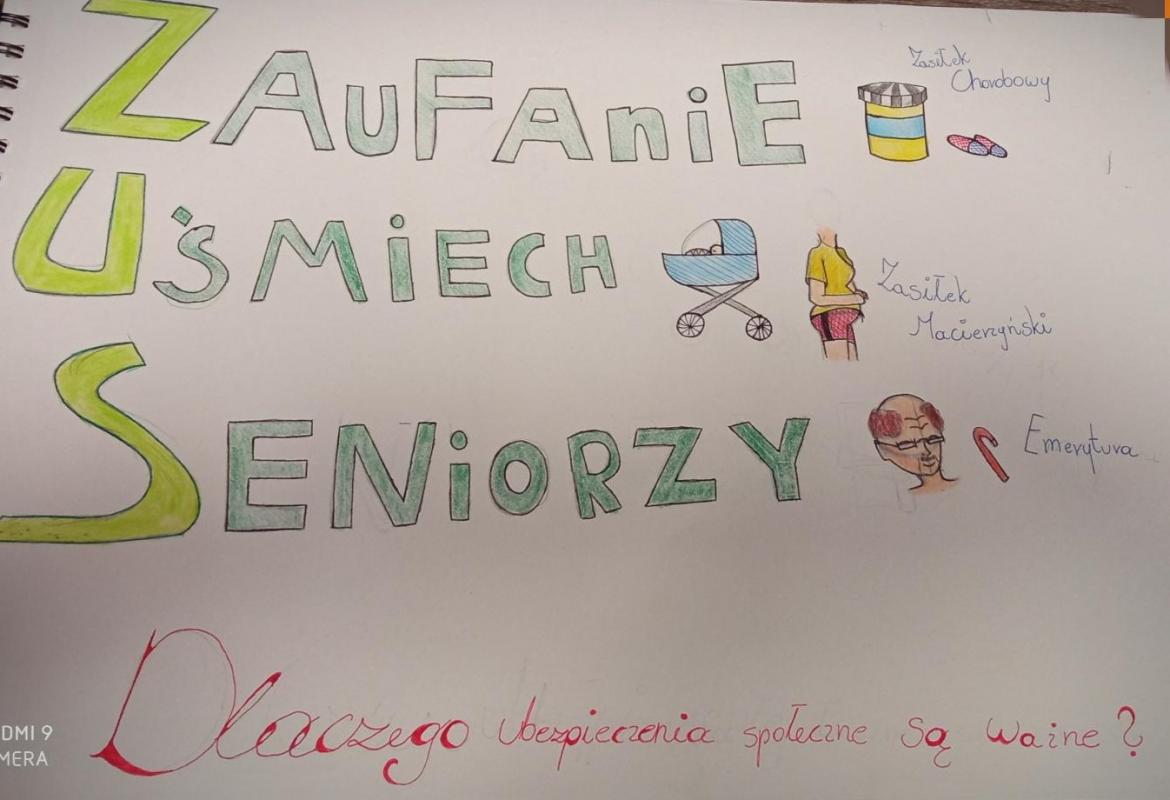 ZAUFANiE
Zasiłek
Chorobowy
UŚMiECH
Zasiłek
Macierzyński
SENiORZY
Emerytura
Dlaczego ubezpieczenia społeczne są ważne?
DMI 9
MERA